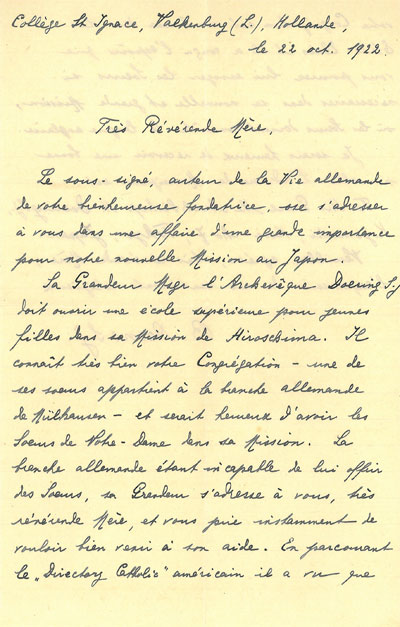 Collège St Ignace, Valkenburg (L.), Hollande,
le 22 oct. 1922.
Très Révérende Mère,
Le sous-signé, auteur de la Vie allemande
de votre bienheureuse fondatrice, ose s'adresser
à vous dans une affaire d'une grande importance
pour notre nouvelle Mission au Japon.
Sa Grandeur Msgr l'Archevêque Doering S.J
doit ouvrir une école supérieure pour jeunes
filles dans sa Mission de Hiroschima. Il
connaît très bien votre Congrégation – une de
ses sœurs appartient à la branche allemande
de Mülhausen – et serait heureux d'avoir les
Sœurs de Notre-Dame dans sa Mission. La
branche allemande étant incapable de lui offrir
des Sœurs, sa Grandeur s'adresse à vous, très
révérende Mère, et vous prie instamment de
vouloir bien venir à son aide. En parcourant
le „Directory Catholic" américain il a vu que